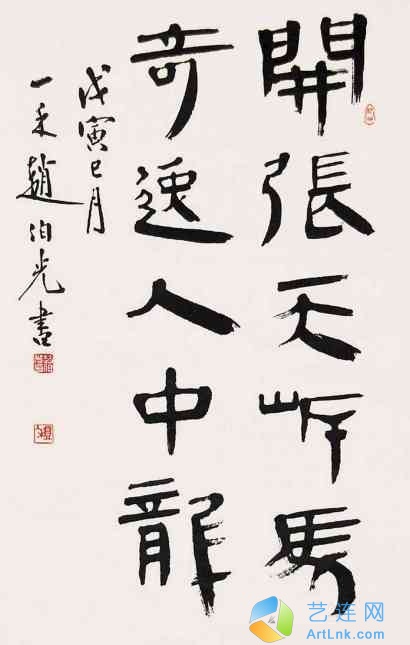 開張天岸馬
奇逸人中龍
戊寅巳月
一禾趙伯光書
艺连网
ArtLnk.com